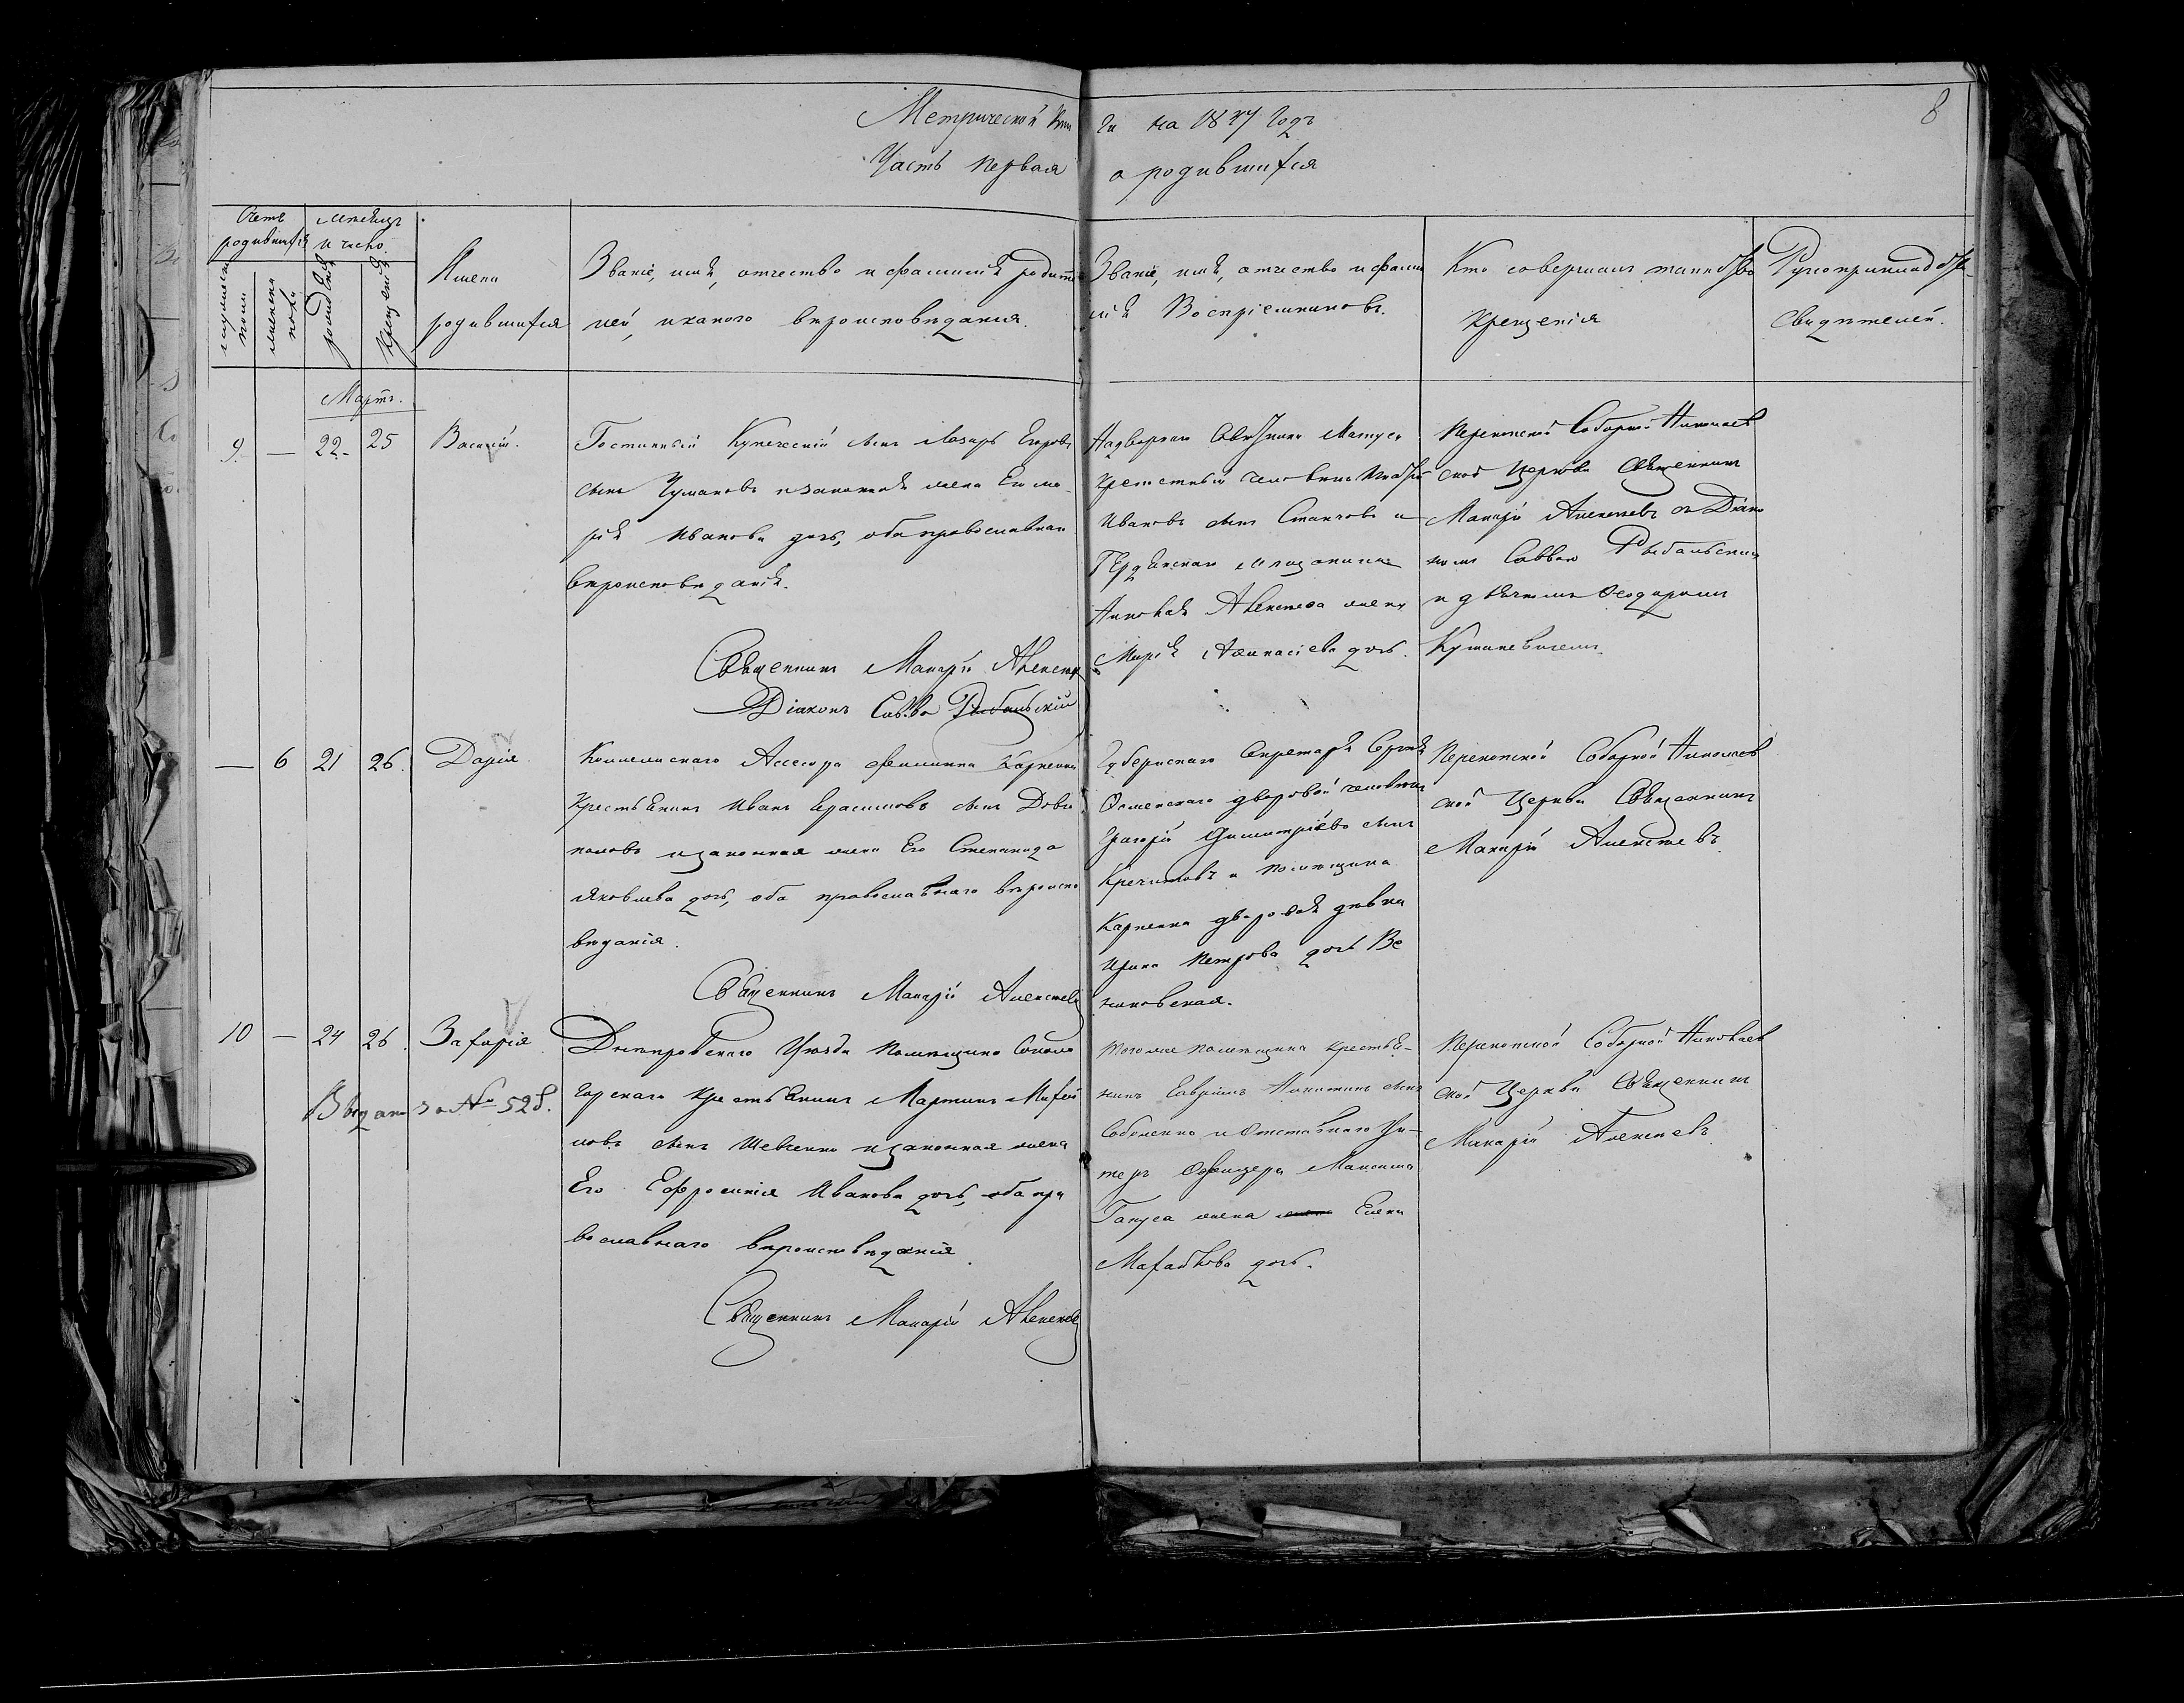 8
Метрической кни ги на 1837 годъ
Часть первая о родившихся
Счетъ родившихся
Месяцъ и число
мужеска пола
женска пола
рожденія
крещенія
Имена
родившихся
Званіе, имя, отчество и фамилія родите
лей, и какого вероисповеданія.
Званіе, имя, отчество и фами
лія Воспріемниковъ.
Кто совершалъ таинство
Крещенія
Рукоприкладство
Свидетелей.
Мартъ.
9. — 22. 25 Василій.
Купеческій сынъ Лазарь Егоровъ
сынъ Чумаковъ и законная жена Его Ма
рія Иванова дочь, оба православнаго
вероисповеданія.
Священникъ Макарій Алексеевъ
Діаконъ Савва Рыбальскій
Надворнаго Советника
Крепостный человекъ
Ивановъ сынъ и
мещанина
Николая Алексеева жена
Марія Афанасіева дочь.
Перекопской Соборной Николаев
ской Церкви Священникъ
Макарій Алексеевъ съ Діако
номъ Саввою Рыбальскимъ
и дьячкомъ Феодоромъ
— 6 21 26. Дарія
Коллежскаго Ассесора Филиппа Карпенка
Крестьянинъ Иванъ Герасимовъ сынъ
и законная жена Его Степанида
Яковлева дочь, оба православнаго вероиспо
веданія.
Священникъ Макарій Алексеевъ
Губернскаго Секретаря Сергея
дворовой человекъ
Григорій Димитріевъ сынъ
и помещика
Карпенка дворовая девка
Ирина Петрова дочь Ве
ликовская.
Перекопской Соборной Николаев
ской Церкви Священникъ
Макарій Алексеевъ.
10 — 24 26. Захарія
Выдано за № 528.
Днепровскаго Уезда Помещика Соколо
горскаго Крестьянинъ Мартинъ Михай
ловъ сынъ Шевченко и законная жена
Его Ефросинія Иванова дочь, оба пра
вославнаго вероисповеданія.
Священникъ Макарій Алексеевъ
того же помещика крестья-
нинъ Гавріилъ Никитинъ сынъ
и отставнаго Ун-
теръ Офицера Максима
жена Елена
Михайлова дочь.
Перекопской Соборной Николаев
ской Церкви Священникъ
Макарій Алексеевъ.